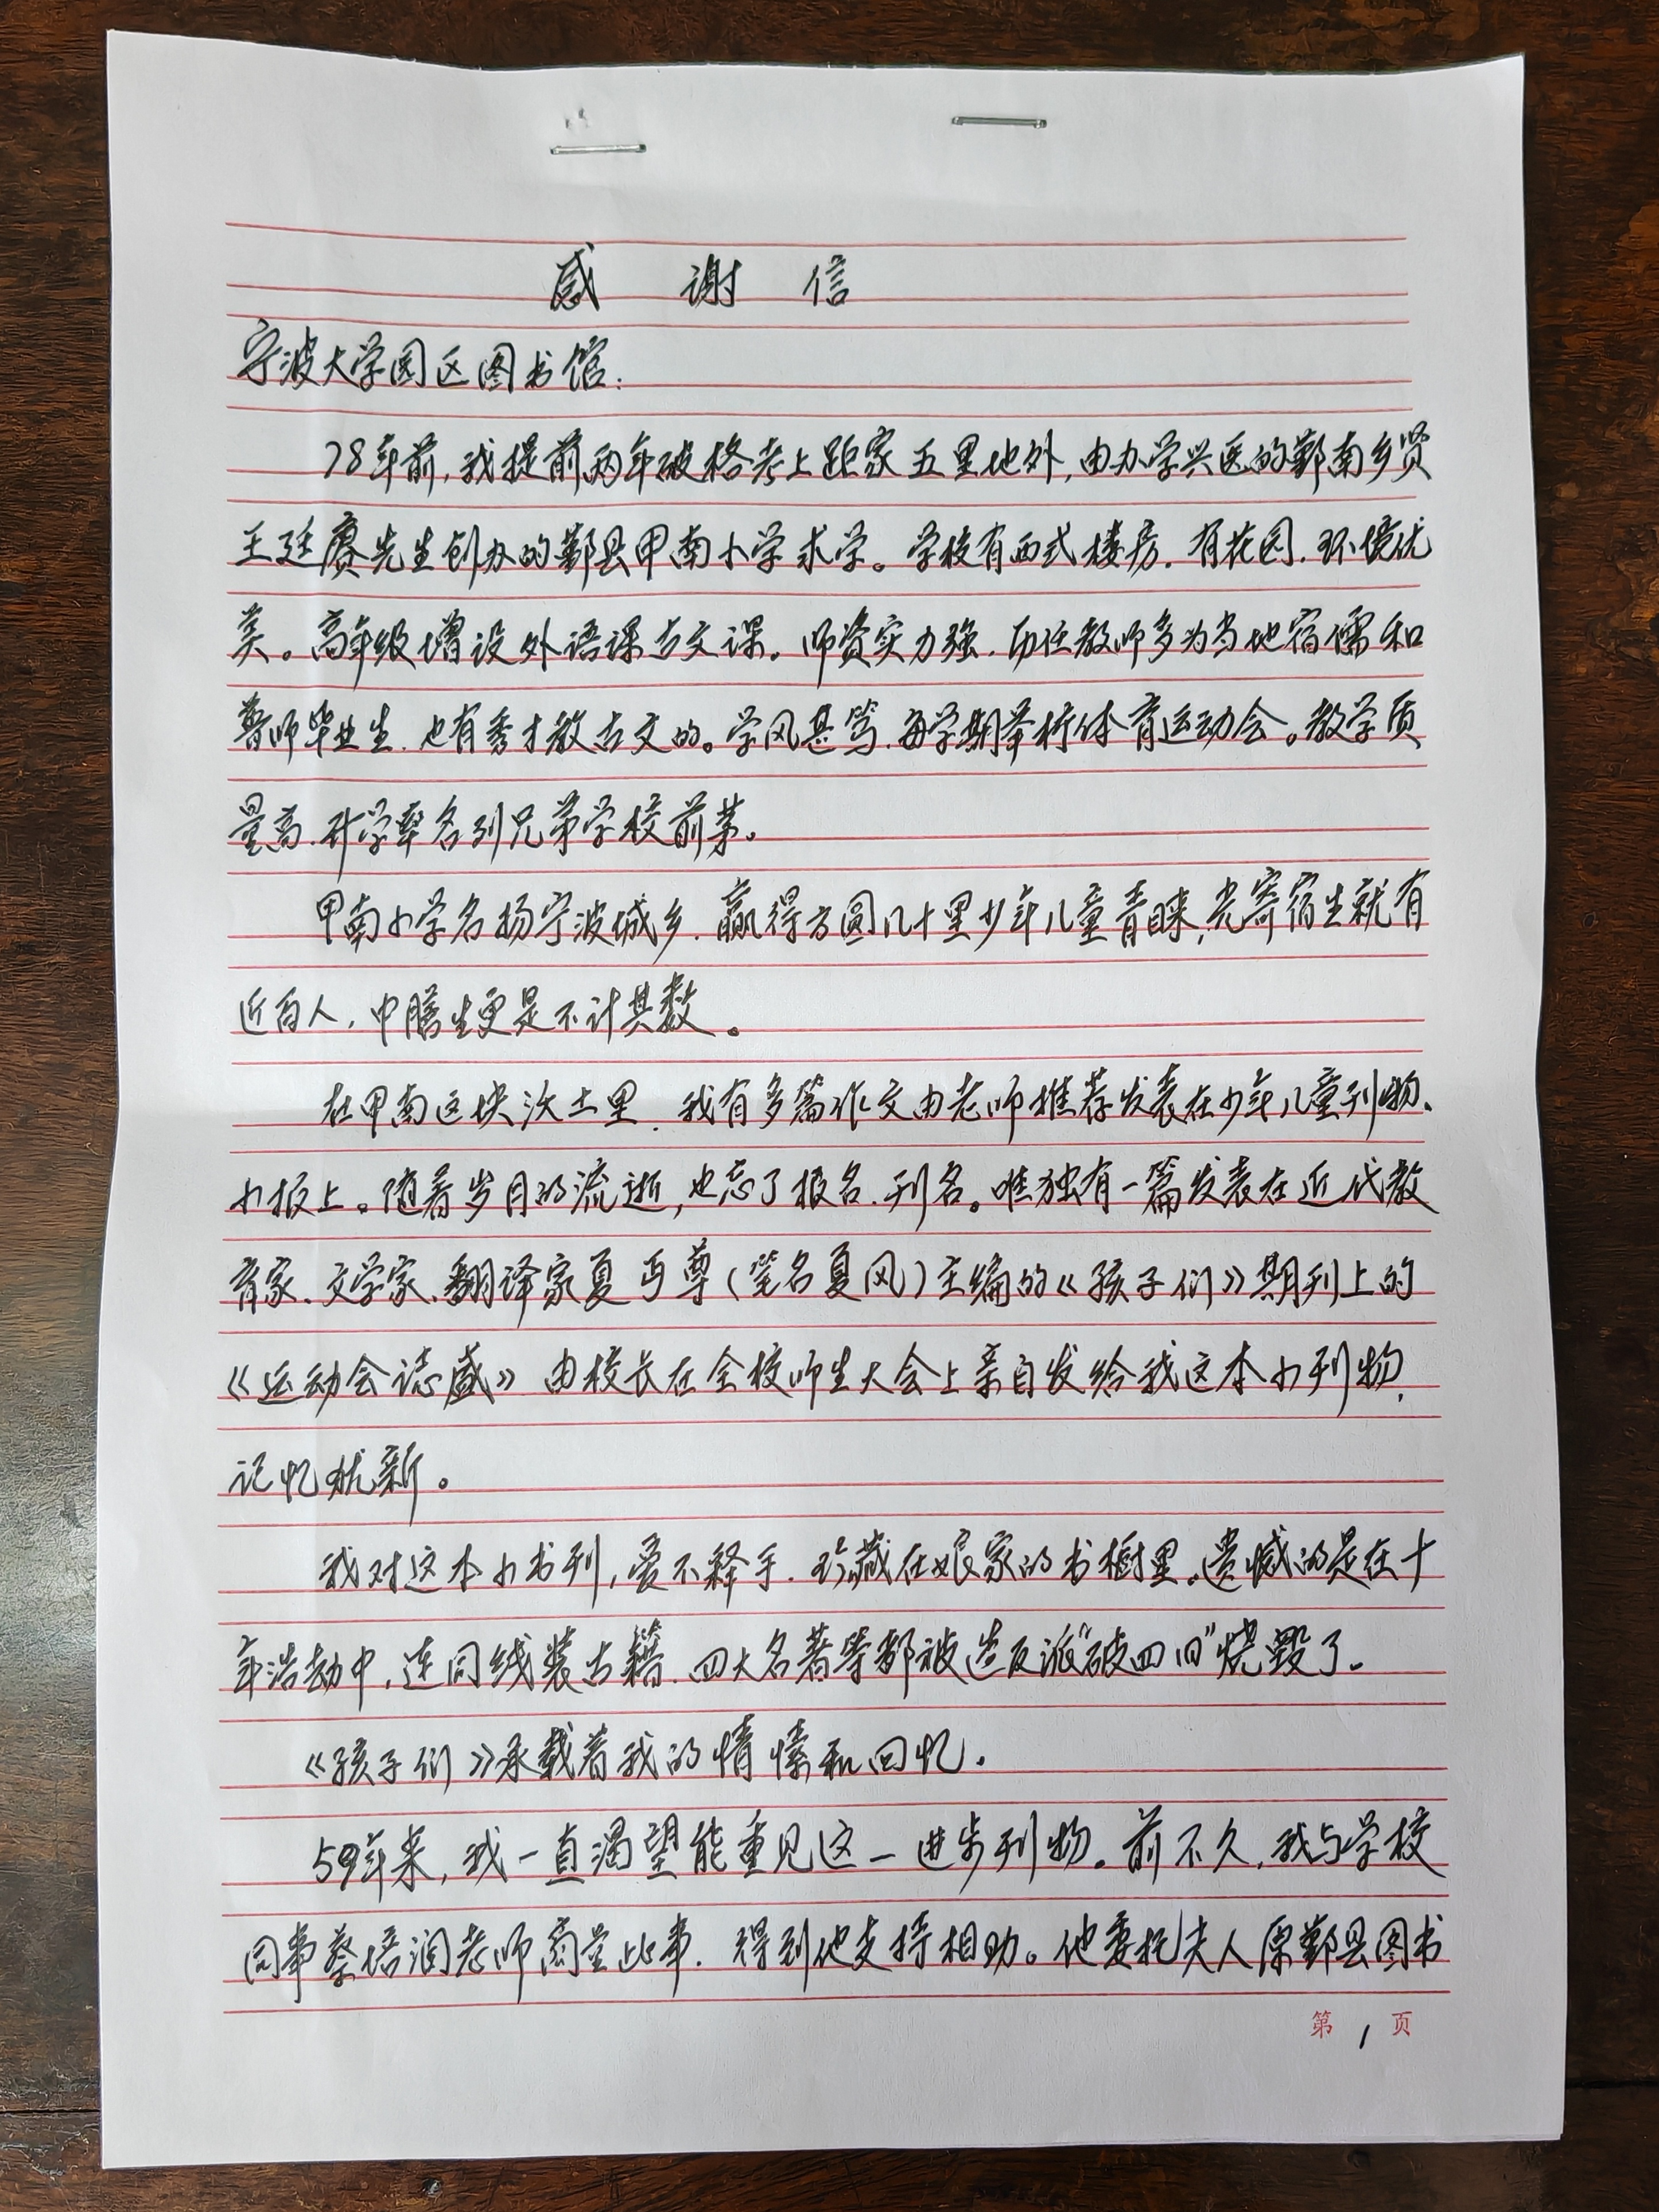 感谢信
宁波大学园区图书馆：
78年前，我提前两年破格考上距家五里地外，由办学兴医的鄞南乡贤
王廷赓先生创办的鄞县甲南小学求学。学校有西式楼房、有花园、环境优
美。高年级增设外语课古文课。师资实力强、历任教师多为当地宿儒和
普师毕业生、也有秀才教古文的。学风甚笃、每学期举行体育运动会。教学质
量高、升学率名列兄弟学校前茅。
甲南小学名扬宁波城乡、赢得方圆几十里少年儿童青睐，光寄宿生就有
近百人，中膳生更是不计其数。
在甲南这块沃土里、我有多篇作文由老师推荐发表在少年儿童刊物、
小报上。随着岁月的流逝，也忘了报名、刊名。唯独有一篇发表在近代教
育家、文学家、翻译家夏丏尊（笔名夏风）主编的《孩子们》期刊上的
《运动会誌盛》由校长在全校师生大会上亲自发给我这本小刊物，
记忆犹新。
我对这本小书刊，爱不释手、珍藏在娘家的书橱里。遗憾的是在十
年浩劫中，连同线装古籍、四大名著等都被造反派“破四旧”烧毁了。
《孩子们》承载着我的情愫和回忆。
59年来，我一直渴望能重见这一进步刊物。前不久，我与学校
同事蔡培润老师商量此事、得到他支持相助。他委托夫人原鄞县图书
第1页